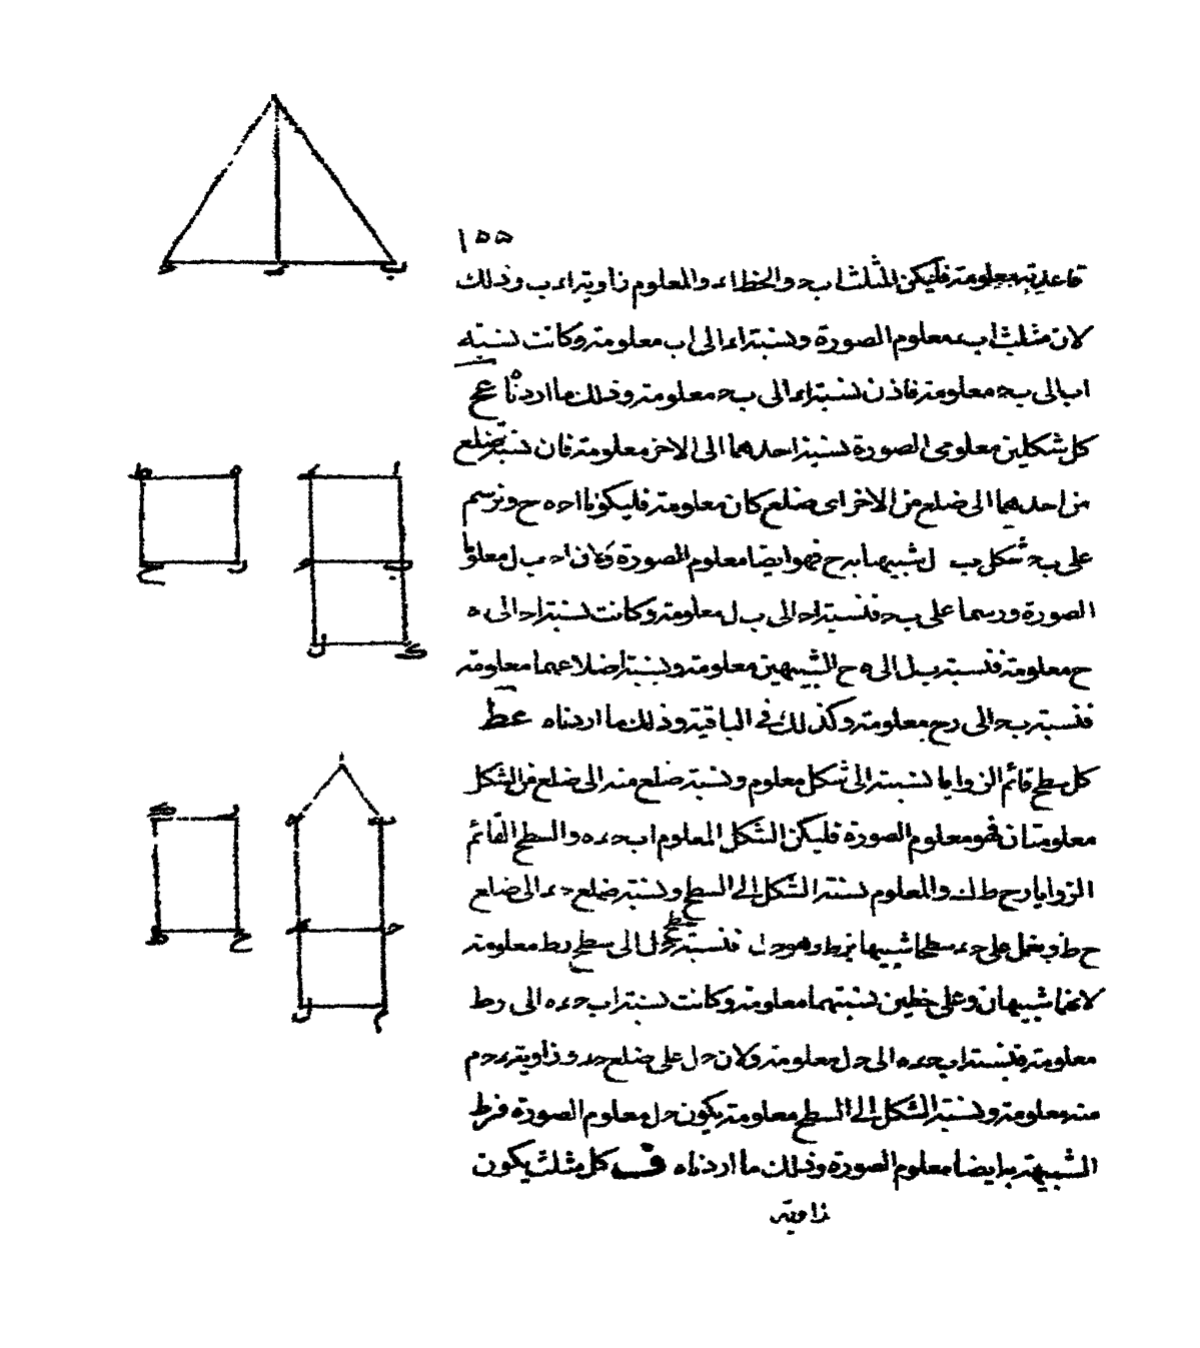 ١٥٥
قاعدته معلومة فليكن المثلث ا ب ح والخط ا ء والمعلوم زاوية ا ء ب وذلك
لان مثلث ا ب ء معلوم الصورة ونسبة ا ء الى ا ب معلومة وكانت نسبة
ا ب الى ب ح معلومة فاذن نسبة ا ء الى ب ح معلومة وذلك ما اردنا عح
كل شكلين معلومى الصورة نسبة احدهما الى الاخر معلومة فان نسبة ضلع
من احدهما الى ضلع من الاخر اى ضلع كان معلومة فليكونا ا ح ه ح ونرسم
على ب ح شكل ب ل شبيها ب ر ح فهو ايضا معلوم الصورة ولان ا ح ب ل معلوما
الصورة ورسما على ب ح فنسبة ا ح الى ب ل معلومة وكانت نسبة ا ح الى ه
ح معلومة فنسبة ب ل الى ه ح الشبيهين معلومة ونسبة اضلاعهما معلومة
فنسبة ب ح الى ر ح معلومة وكذلك في الباقية وذلك ما اردناه عط
كل سطح قائم الزوايا نسبته الى شكل معلوم ونسبة ضلع منه الى ضلع من الشكل
معلومتان فهو معلوم الصورة فليكن الشكل المعلوم ا ب ح ء ه والسطح القائم
الزوايا ر ح ط ك والمعلوم نسبة الشكل الى السطح ونسبة ضلع ح ء الى ضلع
ح ط ونعمل على ح ء سطحا شبيها ب ر ط وهو ح ل فنسبة سطح ح ل الى سطح ر ط معلومة
لانهما شبيهان وعلى خطين نسبتهما معلومة وكانت نسبة ا ب ح ء ه الى ر ط
معلومة فنسبة ا ب ح ء ه الى ح ل معلومة ولان ح ل على ضلع ح ء وزاوية ء ح م
منه معلومة ونسبة الشكل الى السطح معلومة يكون ح ل معلوم الصورة فر ط
الشبيه به ايضا معلوم الصورة وذلك ما اردناه ف كل مثلث يكون
زاوية